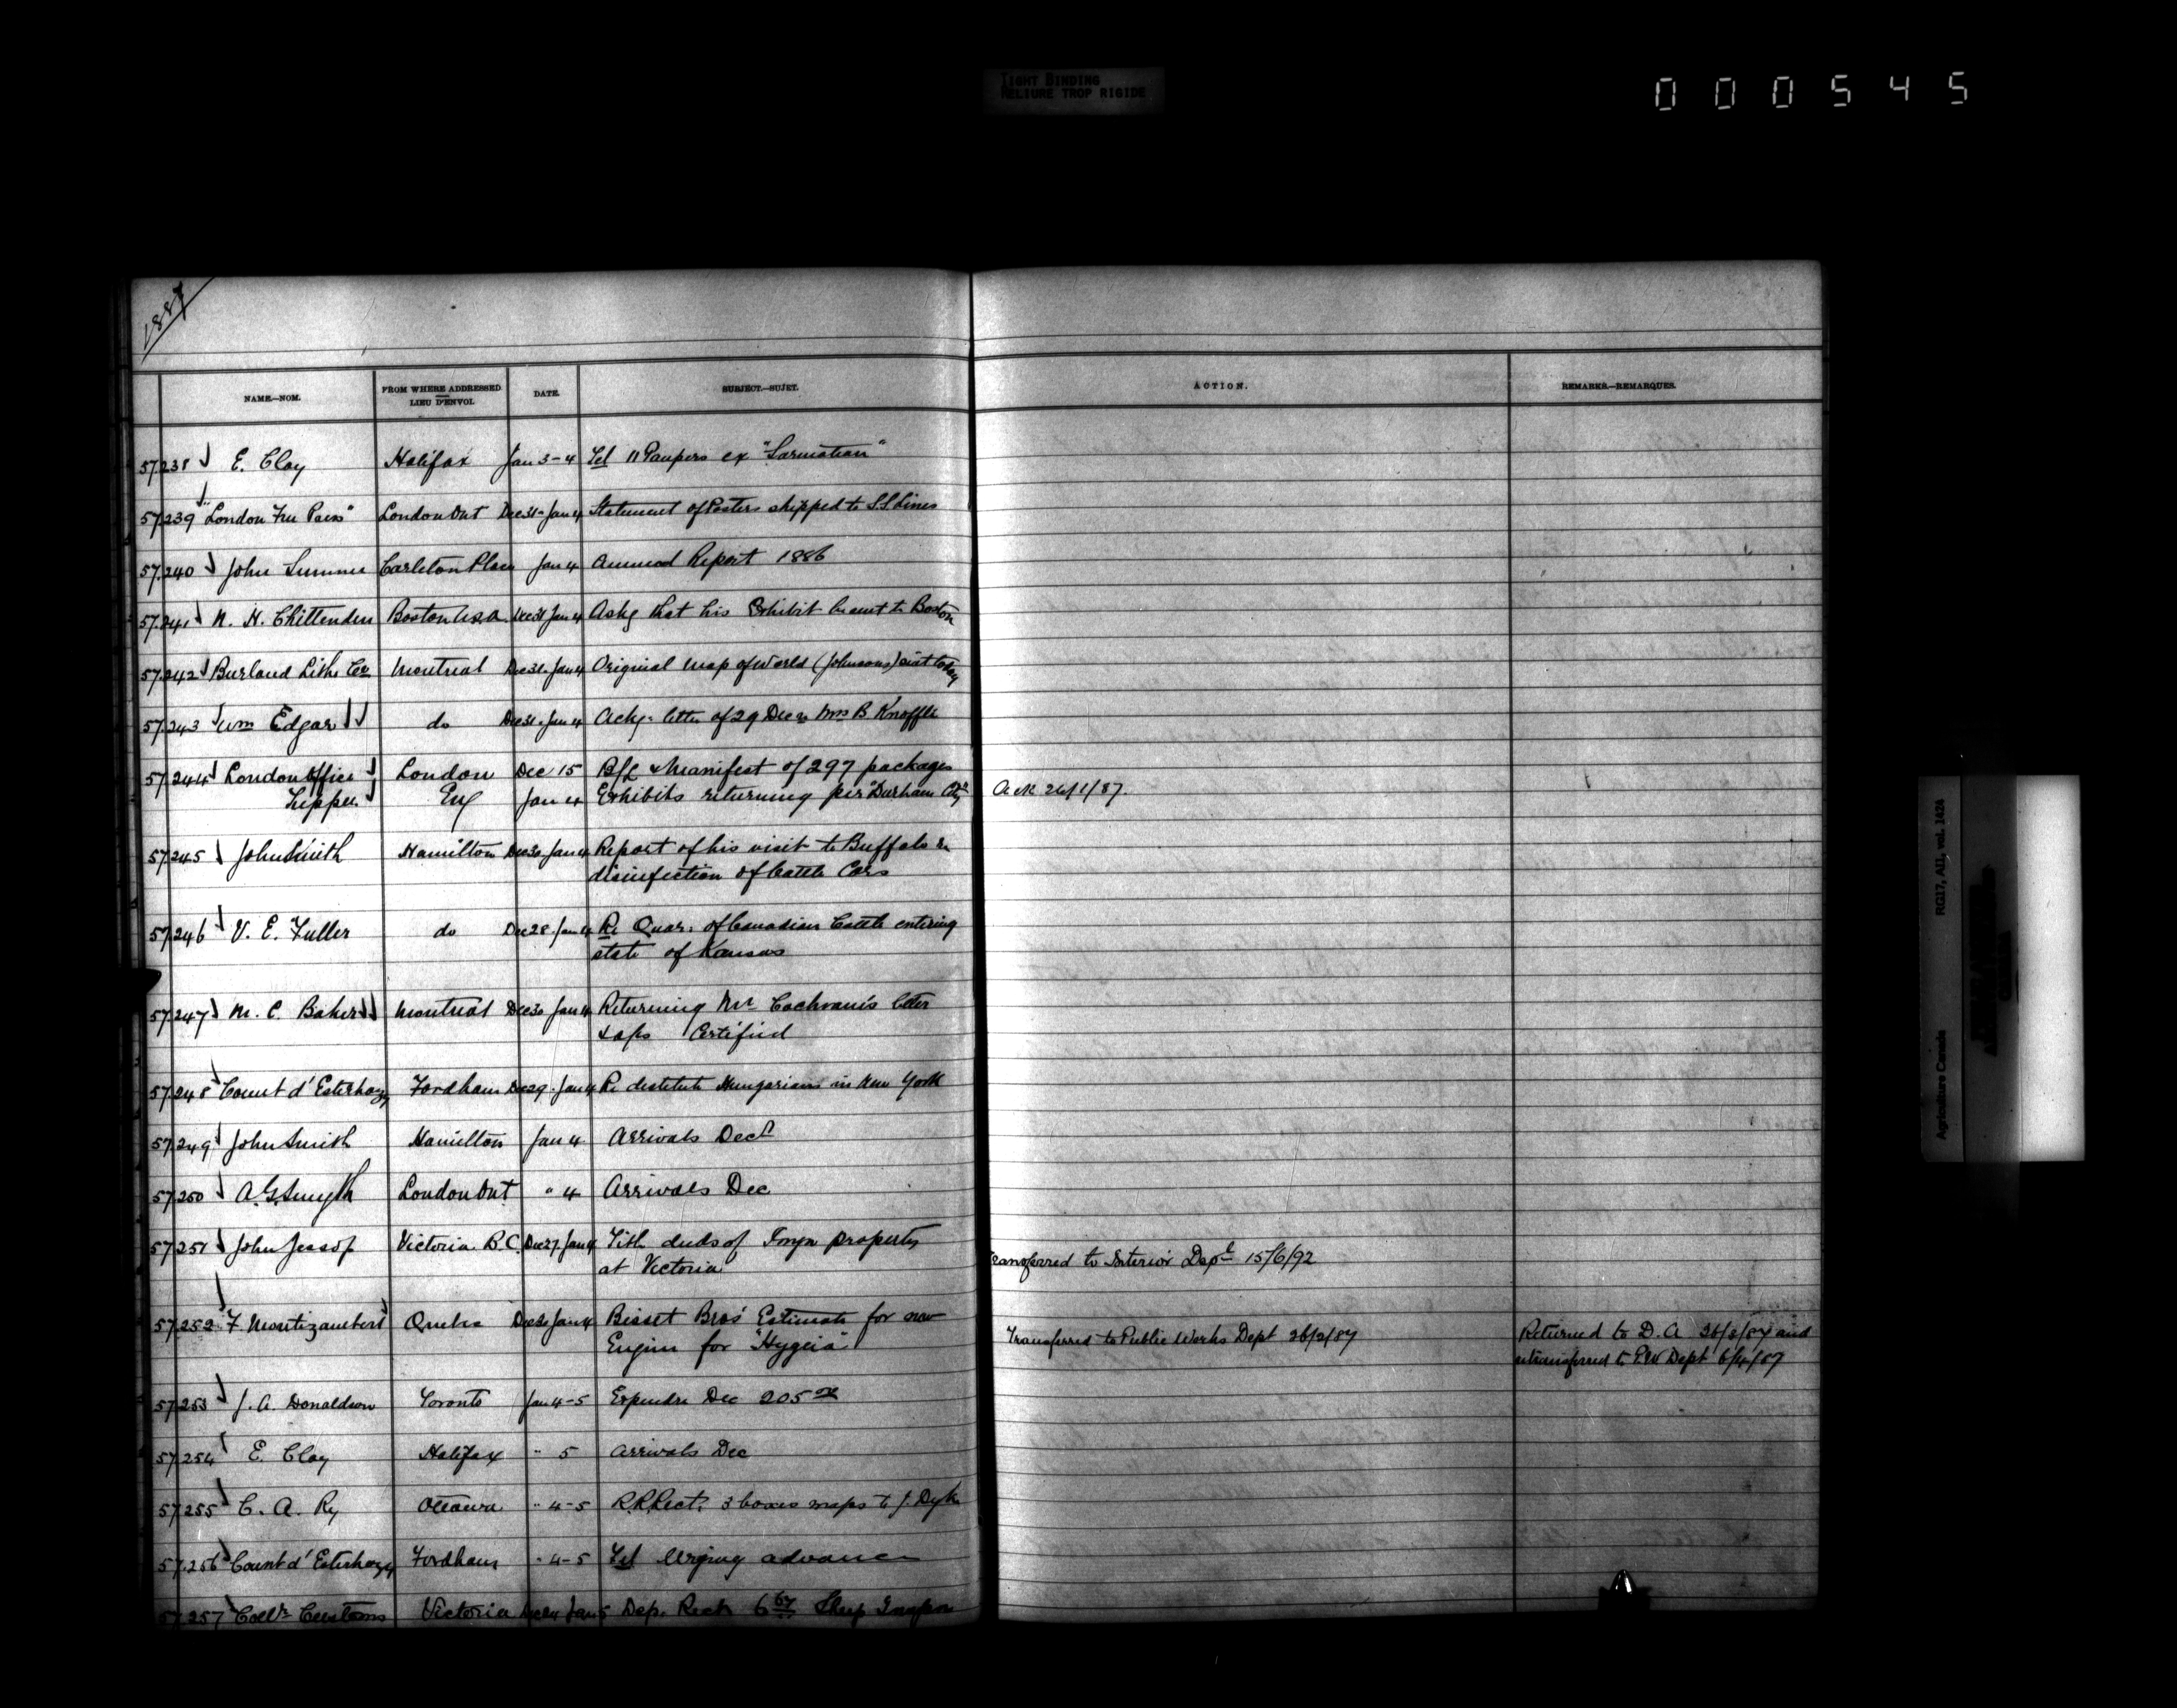 TIGHT BINDING
RELIURE TROP RIGIDE
000545
1887
NAME.—NOM.
FROM WHERE ADDRESSED
LIEU D'ENVOI.
DATE.
SUBJECT.—SUJET.
ACTION.
REMARKS.—REMARQUES.
57.238 E. Clay Halifax Jan 3-4 Tel 11 Paupers ex "Sarmatian"
57.239 "London Free Press" London Ont Dec 31-Jan 4 Statement of Posters shipped to S.S Lines
57.240 John Sumner Carleton Place Jan 4 Annual Report 1886
57.241 N. H. Chittenden Boston U.S.A. Dec 31 Jan 4 Askg that his Exhibit be sent to Boston
57.242 Burland Litho Co Montreal Dec 31. Jan 4 Original map of World (Johnsons) sent today
57.243 Wm Edgar do Dec 31. Jan 4 Ackg: letter of 29 Dec re Mrs B. Knoffle
57.244 London Office London Dec 15 B/L & Manifest of 297 packages
Tupper. Eng Jan 4 Exhibits returning per "Durham City" Ack 26/1/87.
57.245 John Smith Hamilton Dec 30 Jan 4 Report of his visit to Buffalo re
disinfection of Cattle Cars
57.246 V. E. Fuller do Dec 28 Jan 4 Re Quar: of Canadian Cattle entering
state of Kansas
57.247 M. C. Baker Montreal Dec 30 Jan 4 Returning Mr Cochrane's letter
& aps Certified
57.248 Count d'Esterhazy Fordham Dec 29. Jan 4 Re destitute Hungarians in New York
57.249 John Smith Hamilton Jan 4 Arrivals Dec
57.250 A. G. Smyth London Ont " 4 Arrivals Dec
57.251 John Jessop Victoria B.C. Dec 27 Jan 4 Title deeds of property
at Victoria Transferred to Interior Dept 15/6/92
57.252 F. Montizambert Quebec Jan 4 Bisset Bros' Estimate for new
Engine for "Hygeia" Transferred to Public Works Dept 26/2/87 Returned to D. A and
retransferred to P.W Dept 6/4/87
57.253 J. A. Donaldson Toronto Jan 4-5 Expendre Dec 205
57.254 E. Clay Halifax " 5 Arrivals Dec
57.255 C. A. Ry Ottawa " 4-5 R.R. Rect: 3 boxes maps to J. Dyke
57.256 Count d'Esterhazy Fordham " 4-5 Tel Urging advance
57.257 Collr Customs Victoria Jan 5 Dep. Rect 6 Sheep
RG17, A11, vol. 1424
Agriculture Canada